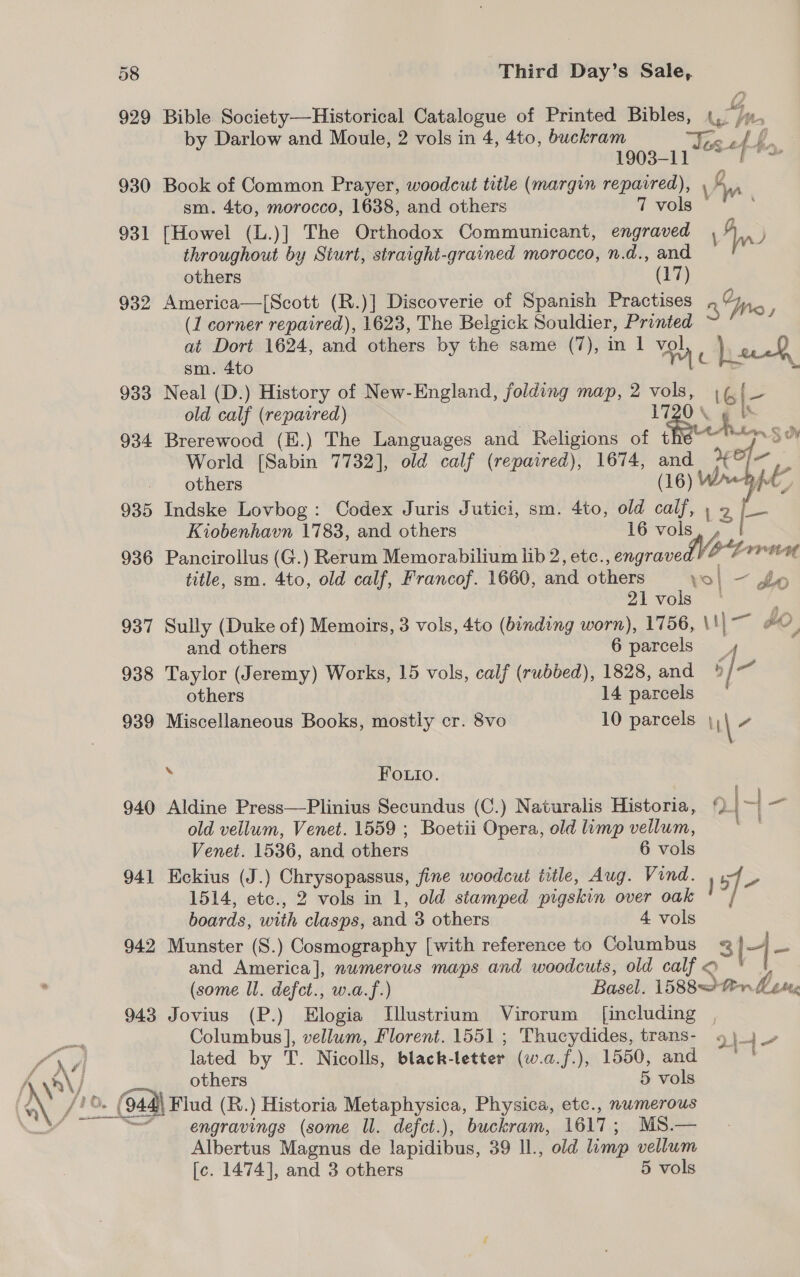 58 Third Day's Sale,
929 Bible Society—Historical Catalogue of Printed Bibles,
by Darlow and Moule, 2 vols in 4, 4to, buckram
1903-11
930 Book of Common Prayer, woodcut title (margin repaired),
sm. 4to, morocco, 1638, and others 7 vols
931 [Howel (L.)] The Orthodox Communicant, engraved
throughout by Sturt, straight-grained morocco, n.d., and
others (17)
932 America—[Scott (R.)] Discoverie of Spanish Practises
(1 corner repaired), 1623, The Belgick Souldier, Printed
at Dort 1624, and others by the same (7), in 1 vol,
sm. 4to
933 Neal (D.) History of New-England, folding map, 2 vols,
old calf (repaired) 1720
934 Brerewood (E.) The Languages and Religions of the
World [Sabin 7732], old calf (repaired), 1674, and
others (16)
935 Indske Lovbog: Codex Juris Jutici, sm. 4to, old calf,
Kiobenhavn 1783, and others 16 vols
936 Pancirollus (G.) Rerum Memorabilium lib 2, etc., engraved
title, sm. 4to, old calf, Francof. 1660, and others
21 vols
937 Sully (Duke of) Memoirs, 3 vols, 4to (binding worn), 1756,
and others 6 parcels
938 Taylor (Jeremy) Works, 15 vols, calf (rubbed), 1828, and
others 14 parcels
939 Miscellaneous Books, mostly cr. 8vo 10 parcels
FOLIO.
940 Aldine Press—Plinius Secundus (C.) Naturalis Historia,
old vellum, Venet. 1559; Boetii Opera, old limp vellum,
Venet. 1536, and others 6 vols
941 Eckius (J.) Chrysopassus, fine woodcut title, Aug. Vind.
1514, etc., 2 vols in 1, old stamped pigskin over oak
boards, with clasps, and 3 others 4 vols
942 Munster (S.) Cosmography [with reference to Columbus
and America], numerous maps and woodcuts, old calf
(some ll. defct., w.a.f.) Basel. 1588
943 Jovius (P.) Elogia Illustrium Virorum [including
Columbus], vellum, Florent. 1551; Thucydides, trans-
lated by T. Nicolls, black-letter (w.a.f.), 1550, and
others 5 vols
944 Flud (R.) Historia Metaphysica, Physica, etc., numerous
engravings (some ll. defct.), buckram, 1617; MS.—
Albertus Magnus de lapidibus, 39 ll., old limp vellum
[c. 1474], and 3 others 5 vols